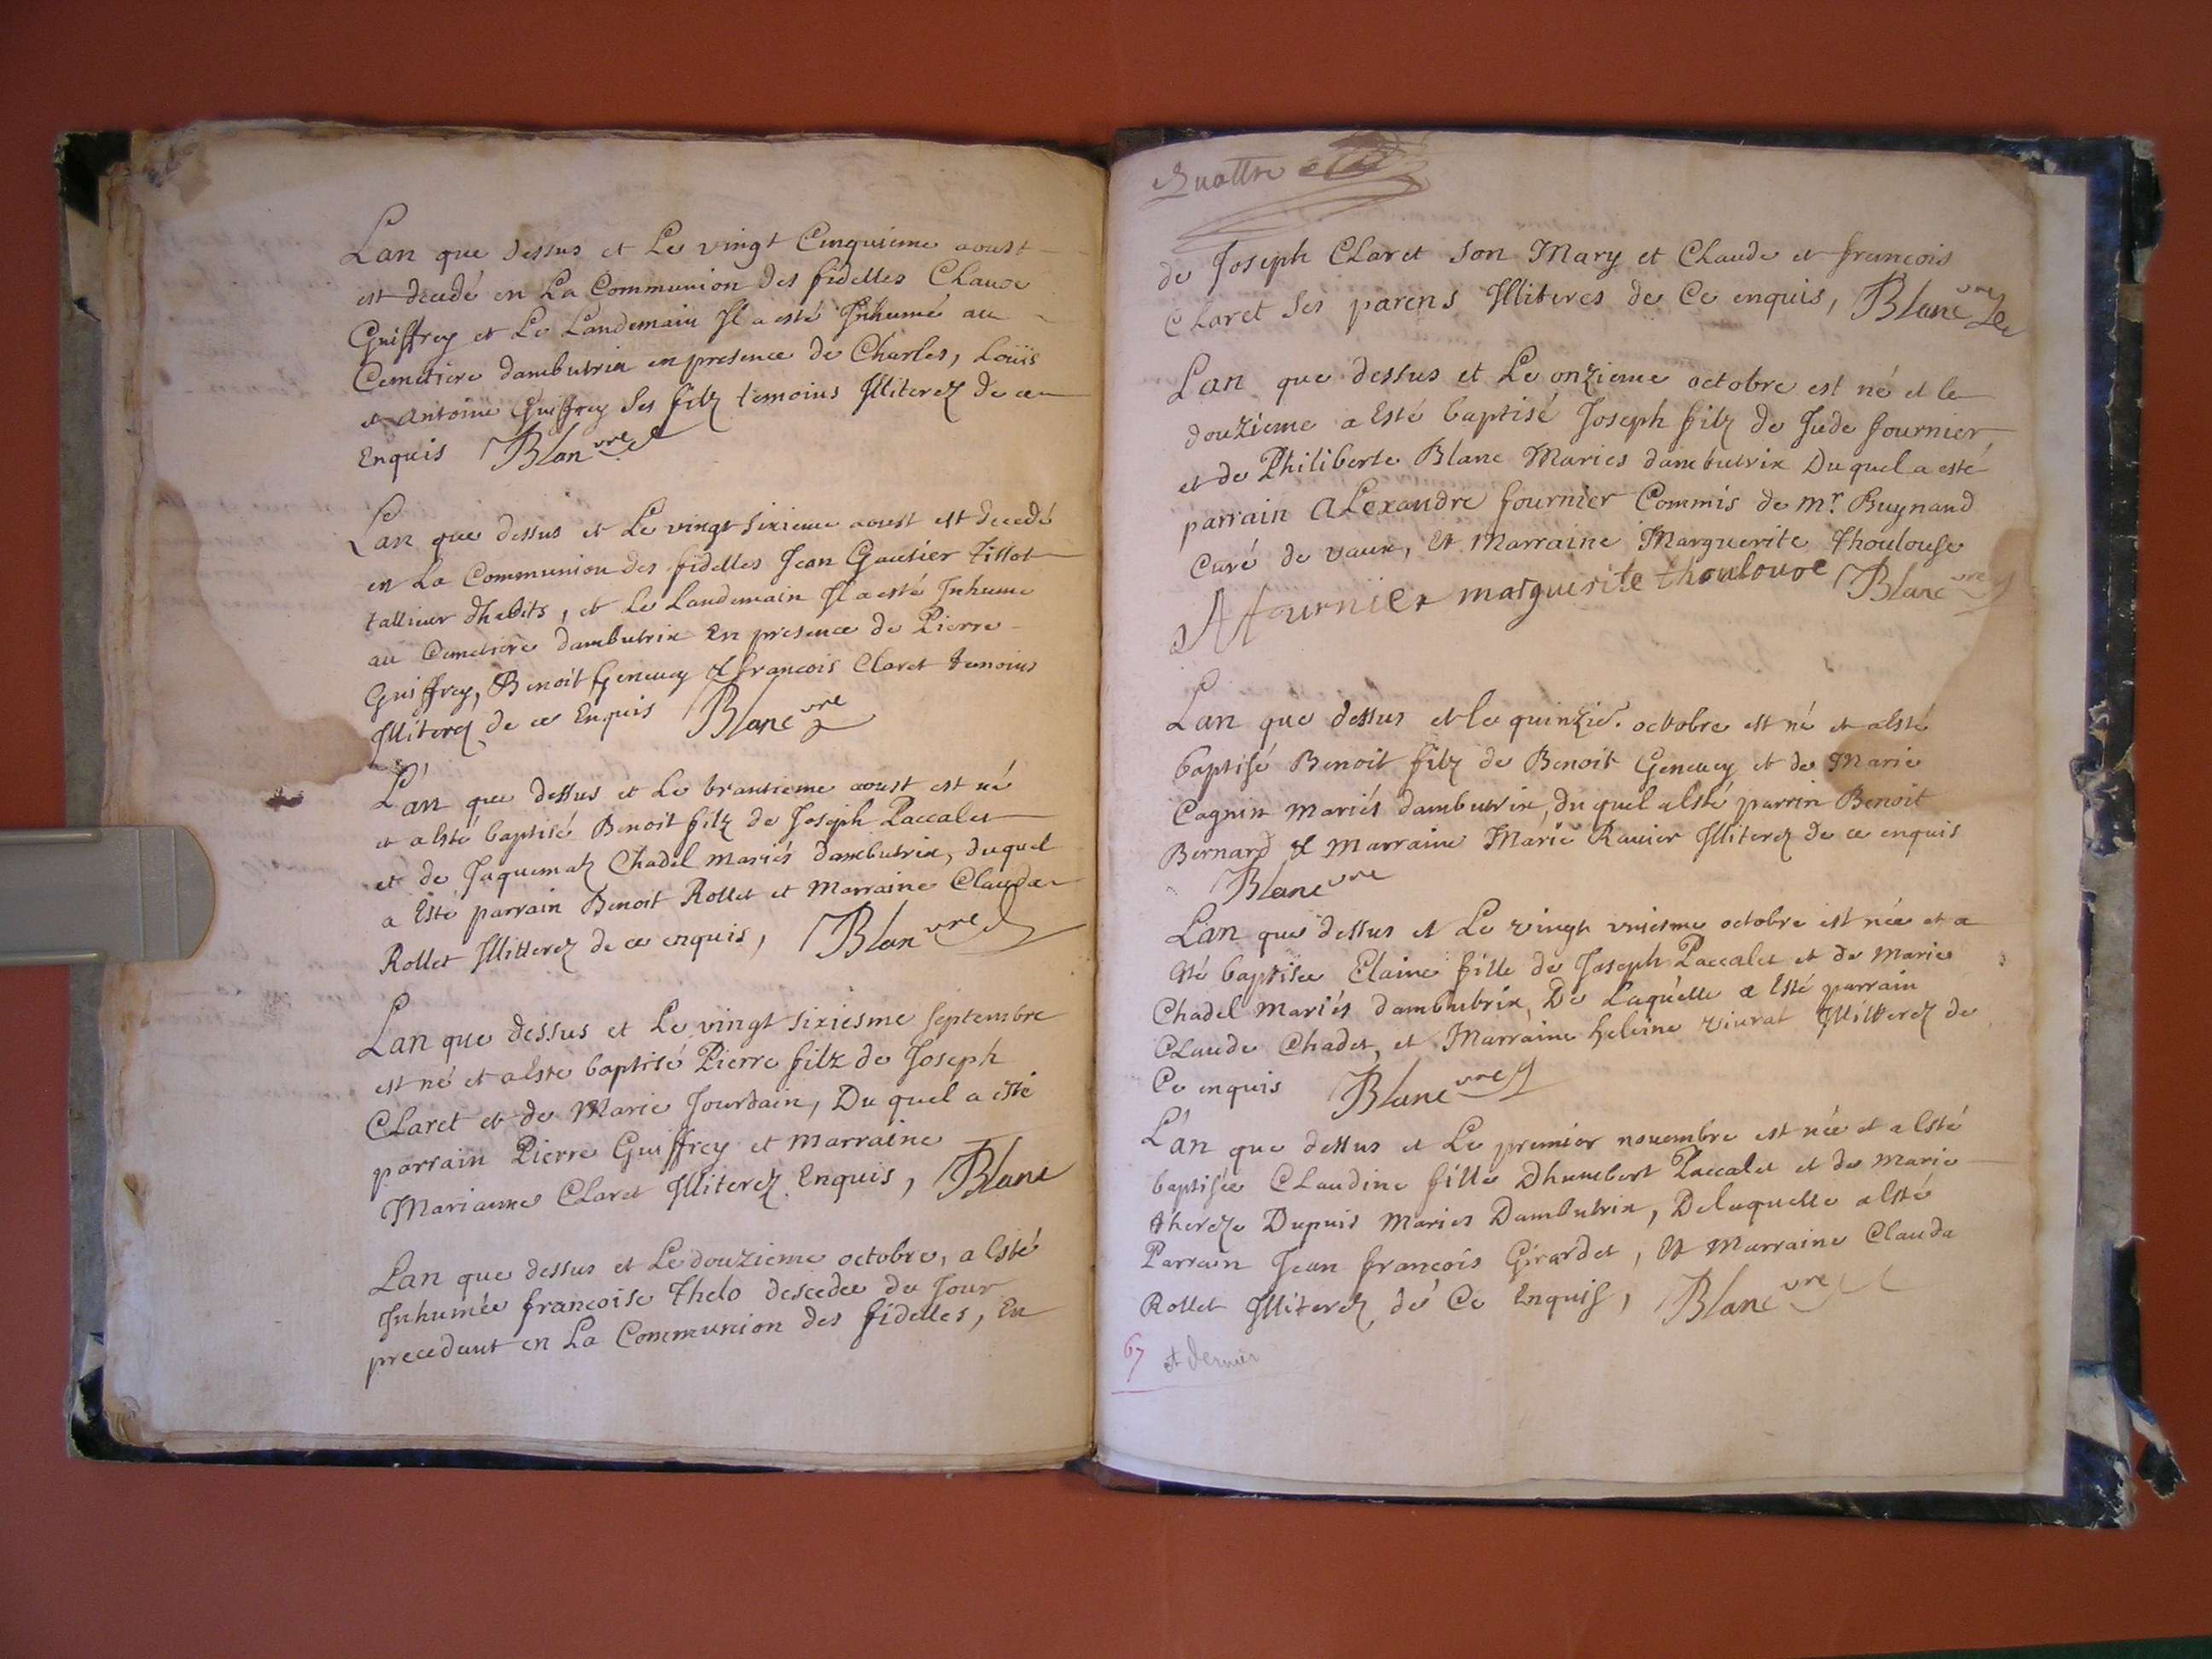 Lan que dessus et Le vingt Cinquieme aoust
est decedé en La Communion des fidelles Claude
Guiffrey et Le Landemain Il a esté Inhumé au
Cemetiere dambutrix en presence de Charles, Loüis
et antoine Guiffrey Ses filz temoins Illiterez de ce
Enquis Blan vre
Lan que dessus et Le vingt Sixieme aoust est decedé
en La Communion des fidelles Jean Gautier Tissot
tallieur dhabits, et Le Landemain Il a esté Inhumé
au Cemetiere dambutrix En presence de Pierre
Guiffrey, Benoit Geneuey et francois Claret temoins
Illiterez de ce Enquis Blanc vre
L'an que dessus et Le trantieme aoust est né
et a esté baptisé Benoit filz de Joseph Paccalet
et de Jaquemaz Chadel mariés dambutrix, duquel
a Esté parrain Benoit Rollet et Marraine Clauda
Rollet Illitterez de ce enquis, Blan vre
Lan que dessus et Le vingt Sixiesme Septembre
est né et a esté baptisé Pierre filz de Joseph
Claret et de Marie Jourdain, Du quel a esté
parrain Pierre Guiffrey et marraine
Marianne Claret Illiterez Enquis, Blanc
Lan que dessus et Le douzieme octobre, a Esté
Inhumée francoise Thelo descedée du Jour
precedant en La Communion des fidelles, En
Quattre
de Joseph Claret Son Mary et Claude et francois
Claret Ses parens Illiteres de Ce enquis, Blanc vre
Lan que dessus et Le onzieme octobre est né et le
douzieme a Esté baptisé Joseph filz de Jude fournier
et de Philiberte Blanc Maries dambutrix Du quel a esté
parrain aLexandre fournier Commis de mr. Buynand
Curé de vaux, Et Marraine Marguerite Thoulouse
A fournier marguerite thoulouse Blanc vre
Lan que dessus et le quinzie. octobre est né et a Esté
baptisé Benoit filz de Benoit Geneuey et de Marie
Cagnin Mariés dambutrix, du quel a Esté parrin Benoit
Bernard et marraine Marie Rauier Illiterez de ce enquis
Blanc vre
Lan que dessus et Le vingt vniesme octobre est née et a
esté baptisée Elaine fille de Joseph Paccalet et de Marie
Chadel mariés dambutrix, De Laquelle a Esté parrain
Claude Chadet, et Marraine heleine viurat Illitterez de
Ce enquis Blanc vre
L'an que dessus et Le premier nouembre est née et a Esté
baptisée Claudine fille Dhumbert Paccalet et de Marie
thereze Dupuis Maries Dambutrix, De laquelle a Esté
Parrain Jean francois Girardet, Et Marraine Clauda
Rollet Illiterez de Ce Enquis, Blanc vre
67 et dernier